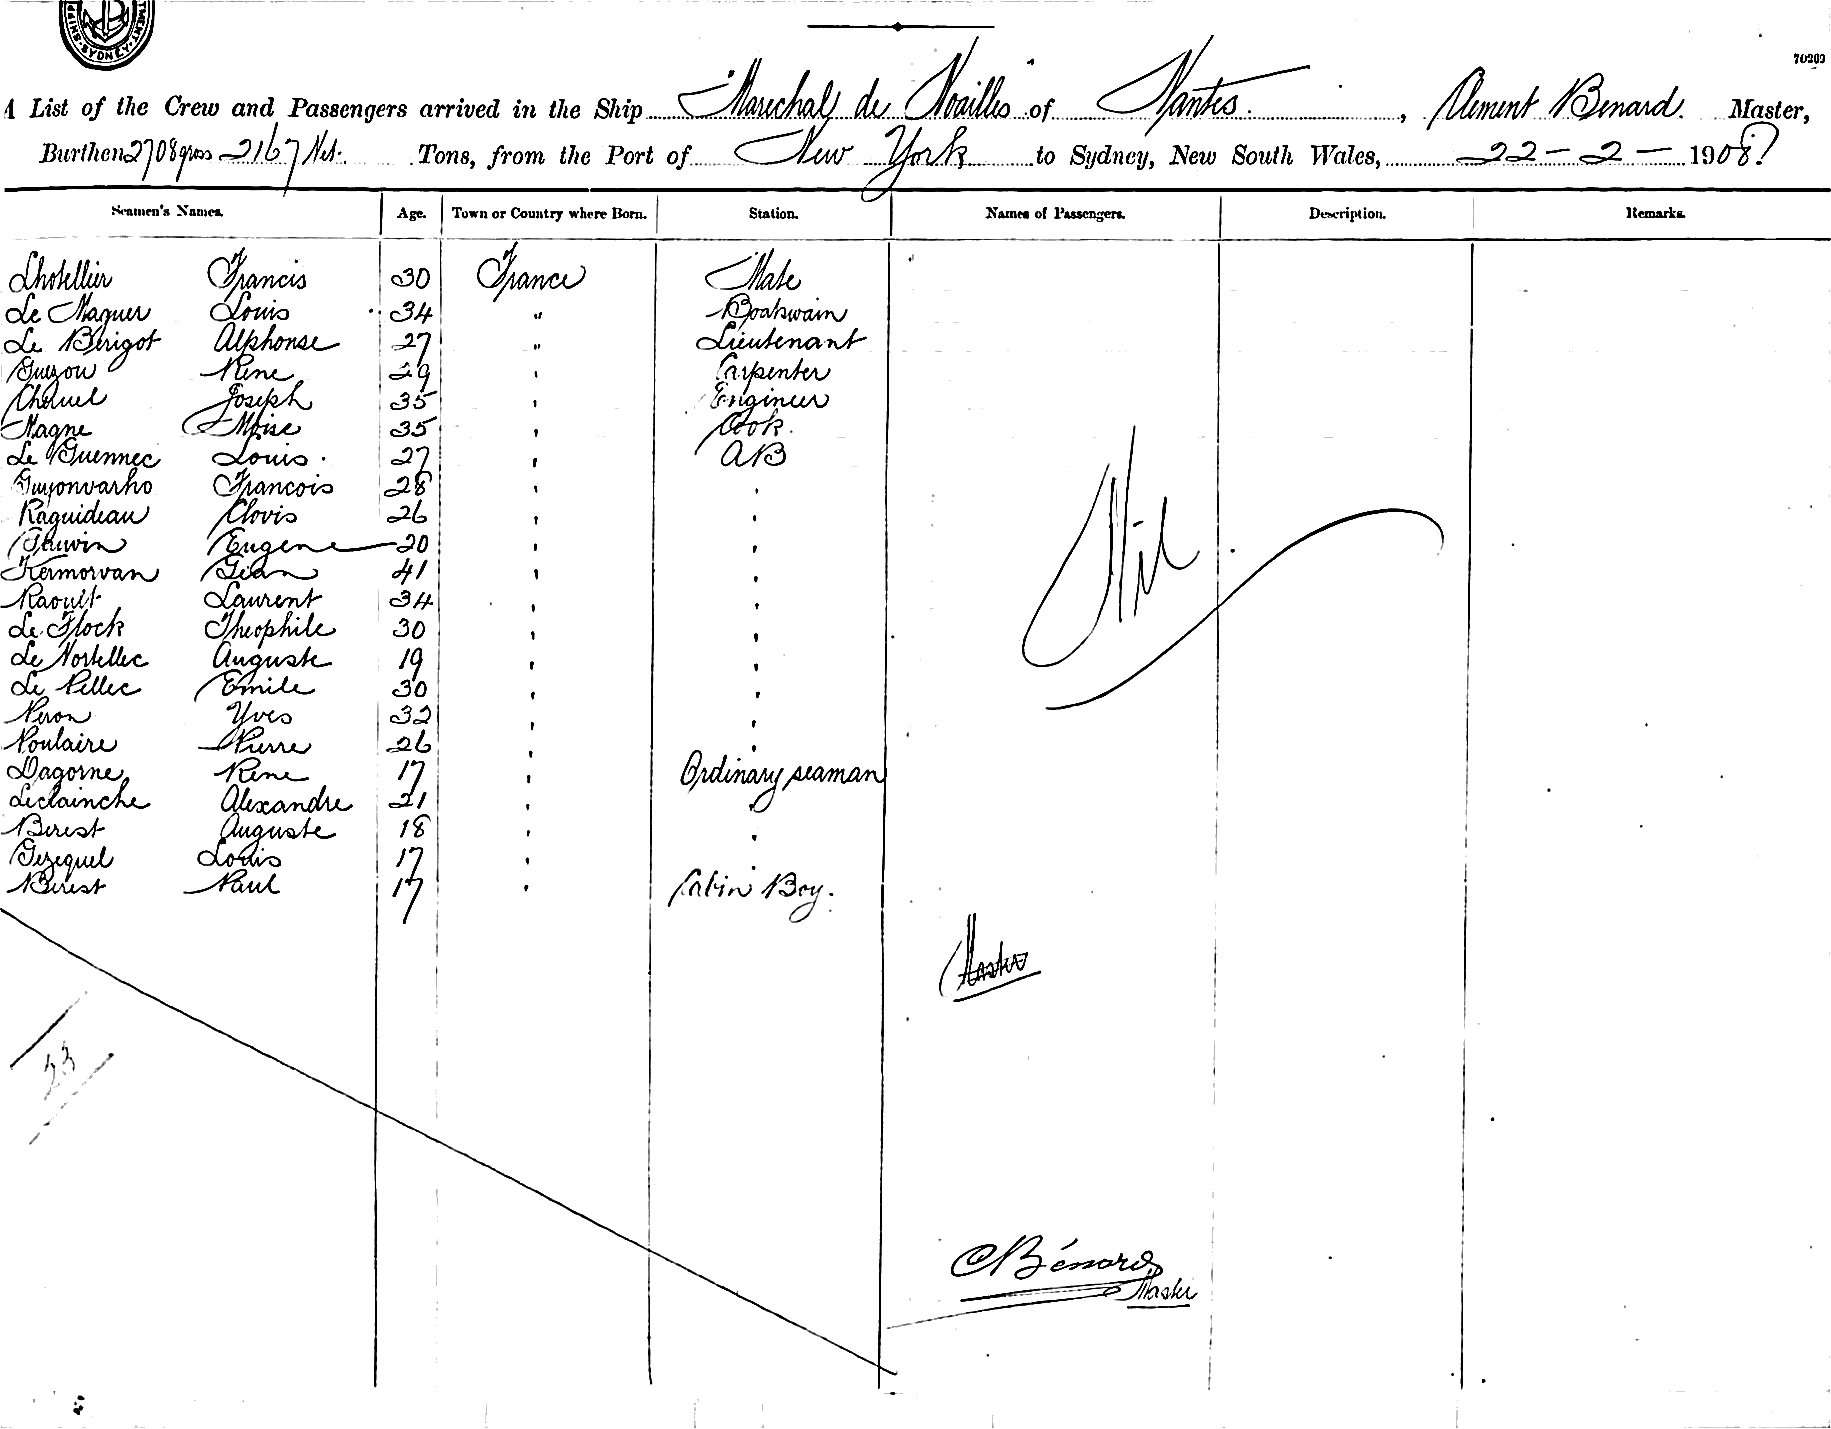 SYDNEY
70203
A List of the Crew and Passengers arrived in the Ship Marechal de Noailles of Nantes, Clement Benard. Master,
Burthen 2708 gross 2167 Net. Tons, from the Port of New York to Sydney, New South Wales, 22 – 2 – 1908
Seamen's Names. Age. Town or Country where Born. Station. Names of Passengers. Description. Remarks.
Lhotellier Francis 30 France Mate
Le Maguer Louis 34 " Boatswain
Le Berigot Alphonse 27 " Lieutenant
Guezou Rene 29 ' Carpenter
Cheruel Joseph 35 ' Engineer
Magne Moise 35 ' Cook.
Le Guennec Louis 27 ' AB
Guyonvarho Francois 28 ' '
Raguideau Clovis 26 ' '
Eugene 20 ' '
Kermorvan Jean 41 ' '
Raoult Laurent 34 ' '
Le Flock Theophile 30 ' '
Le Nortellec Auguste 19 ' '
Le Pellec Emile 30 ' '
Peron Yves 32 ' '
Poulaire Pierre 26 ' '
Dagorne Rene 17 ' Ordinary seaman
Leclainche Alexandre 21 ' '
Berest Auguste 18 ' '
Gezequel Louis 17 ' '
Berest Paul 17 ' Cabin Boy.
Nil
Master
23
CBénard
Master